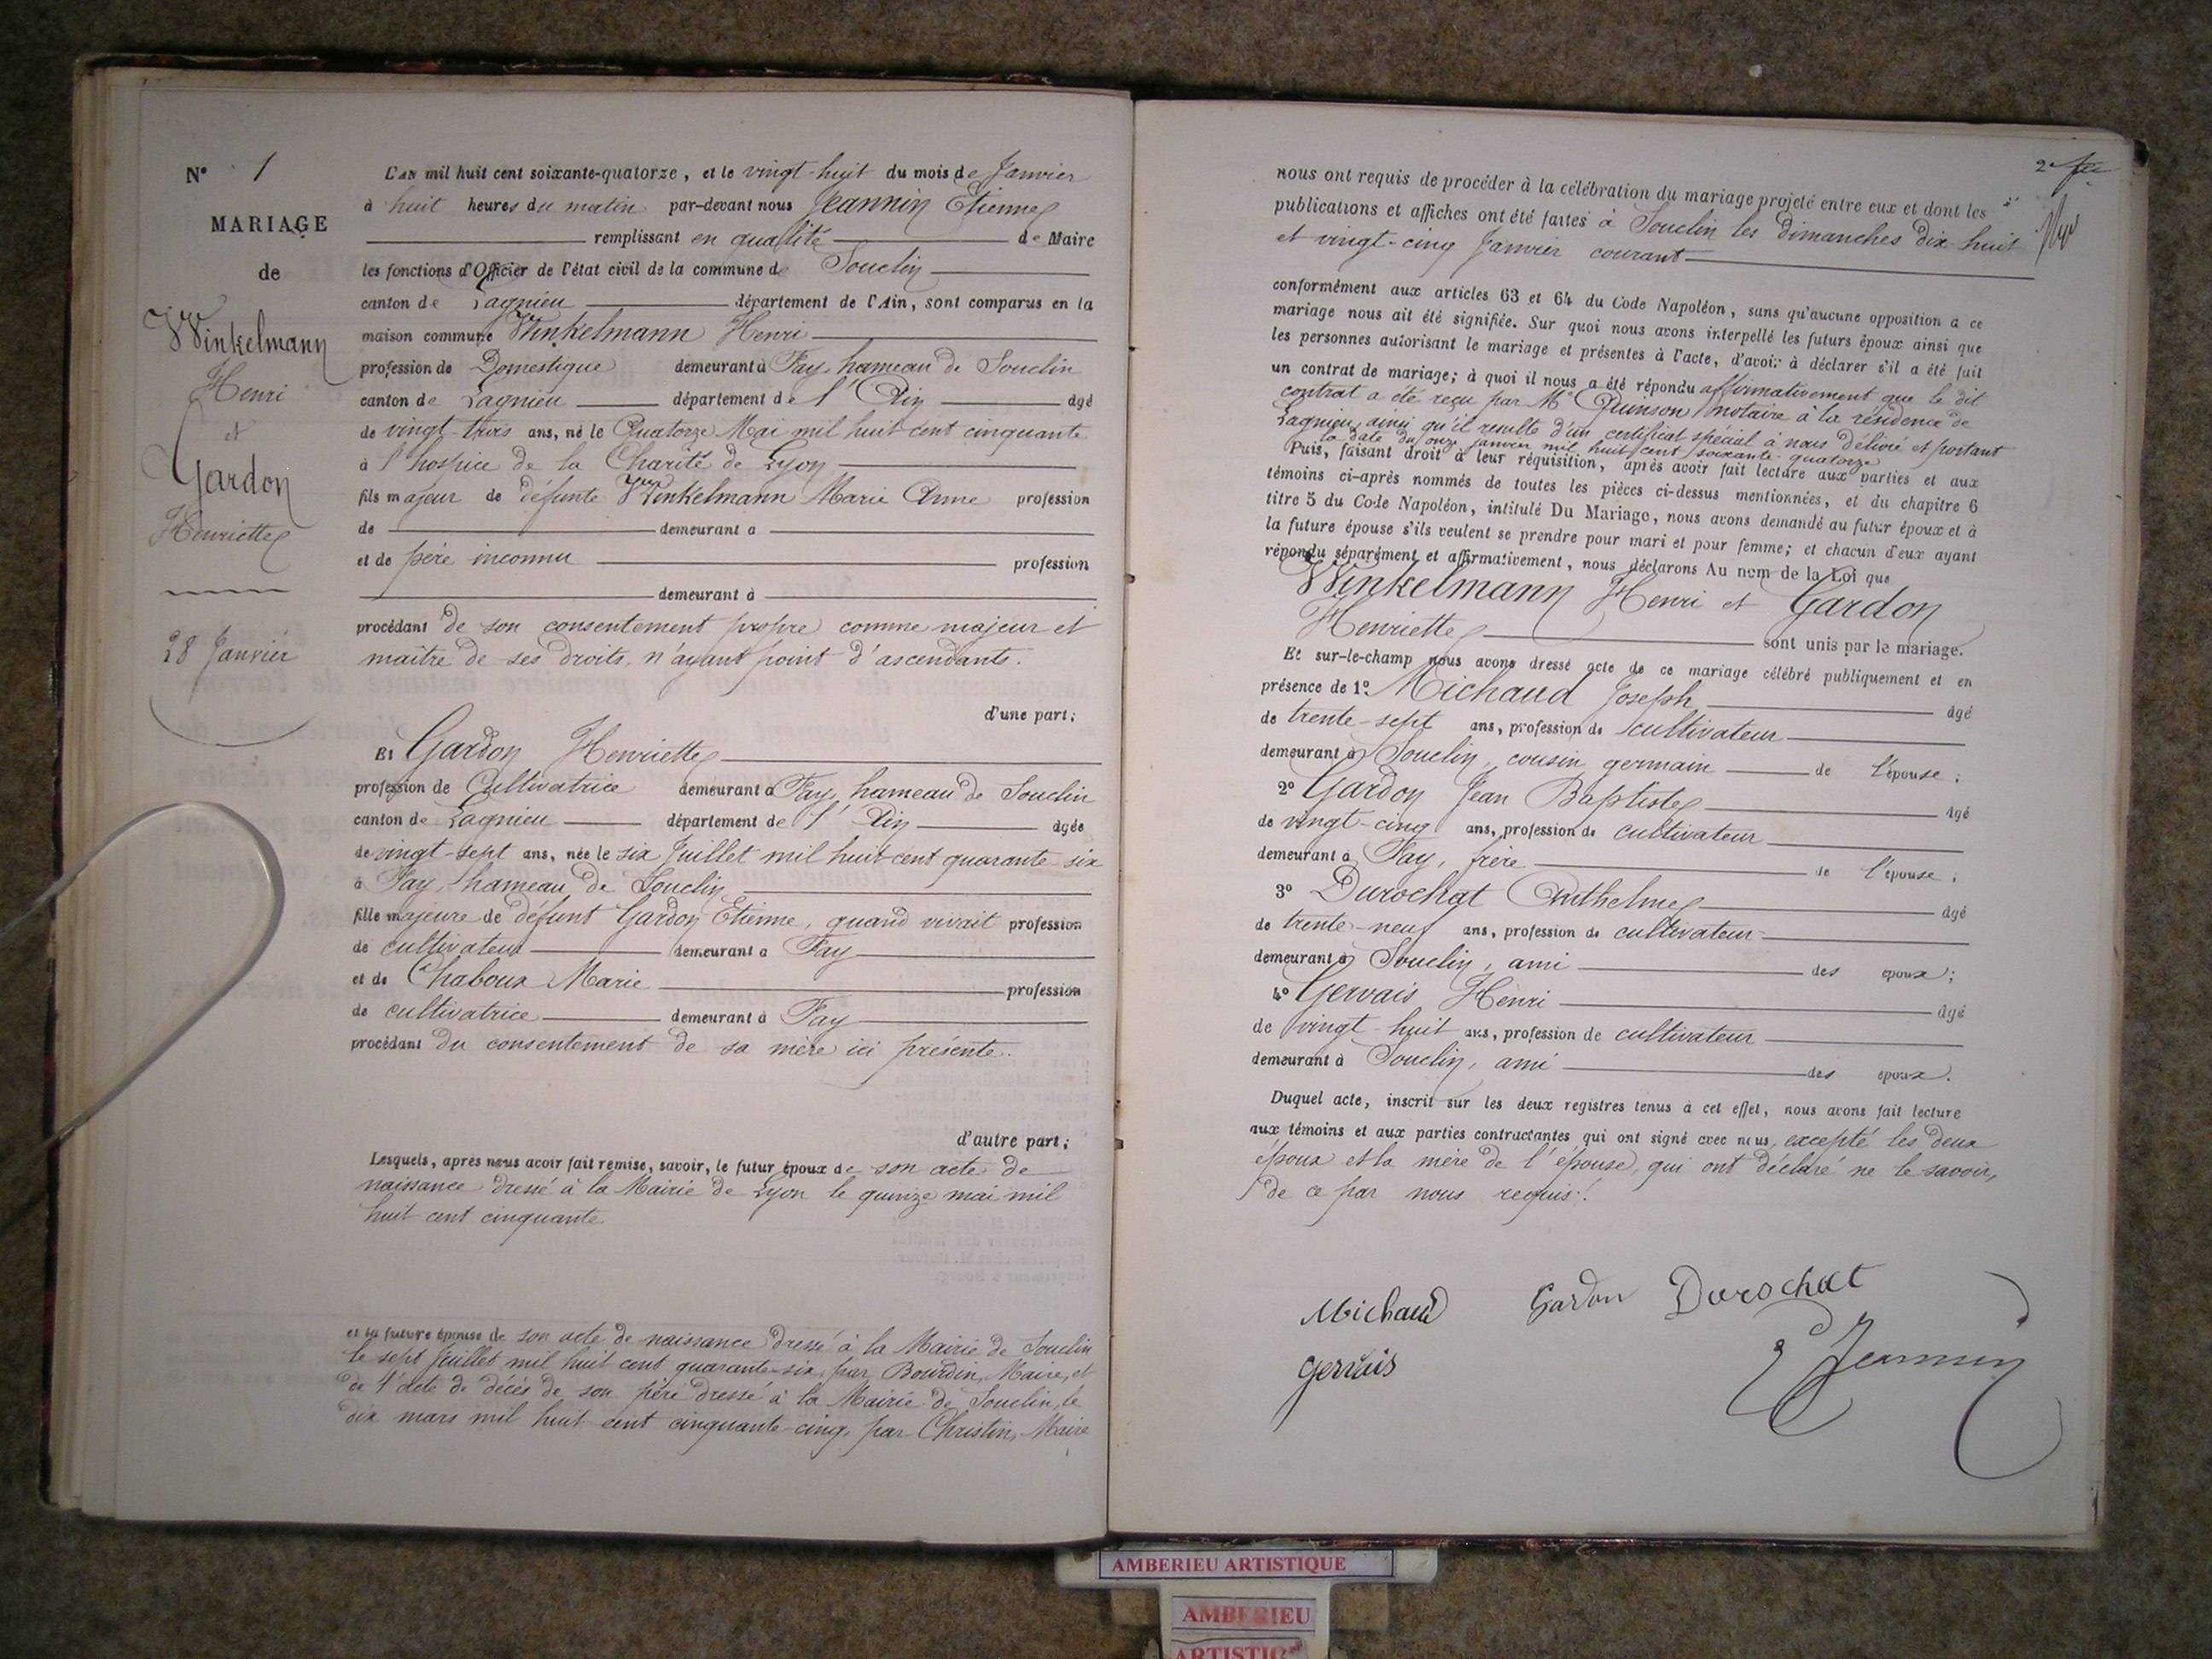 N° 1
MARIAGE
de
Winkelmann
Henri
et
Gardon
Henriette
28 Janvier
L'AN mil huit cent soixante-quatorze, et le vingt-huit du mois de Janvier
à huit heures du matin par-devant nous Jeannin Etienne
remplissant en qualité de Maire
les fonctions d'Officier de l'état civil de la commune de Souclin
canton de Lagnieu département de l'Ain, sont comparus en la
maison commune Winkelmann Henri
profession de Domestique demeurant à Fay, hameau de Souclin
canton de Lagnieu département de l'Ain âgé
de vingt-trois ans, né le Quatorze Mai mil huit cent cinquante
à l'hospice de la Charité de Lyon
fils majeur de défunte Winkelmann Marie Anne profession
de demeurant a
et de père inconnu profession
demeurant à
procédant de son consentement propre comme majeur et
maître de ses droits, n'ayant point d'ascendants.
d'une part;
Et Gardon Henriette
profession de Cultivatrice demeurant a Fay, hameau de Souclin
canton de Lagnieu département de l'Ain âgée
de vingt-sept ans, née le six Juillet mil huit cent quarante six
à Fay, hameau de Souclin
fille majeure de défunt Gardon Etienne, quand vivait profession
de cultivateur demeurant a Fay
et de Chaboux Marie profession
de cultivatrice demeurant à Fay
procédant du consentement de sa mère ici présente.
d'autre part;
Lesquels, après nous avoir fait remise, savoir, le futur époux de son acte de
naissance dressé à la Mairie de Lyon le quinze mai mil
huit cent cinquante.
et la future épouse de son acte de naissance dressé à la Mairie de Souclin
le sept Juillet mil huit cent quarante-six, par Bourdin, Maire, et
de l'acte de décès de son père dressé à la Mairie de Souclin, le
dix mars mil huit cent cinquante-cinq, par Christin, Maire
2e
nous ont requis de procéder à la célébration du mariage projeté entre eux et dont les
publications et affiches ont été faites à Souclin les dimanches dix huit
et vingt-cinq Janvier courant
conformément aux articles 63 et 64 du Code Napoléon, sans qu'aucune opposition a ce
mariage nous ait été signifiée. Sur quoi nous avons interpellé les futurs époux ainsi que
les personnes autorisant le mariage et présentes à l'acte, d'avoir à déclarer s'il a été fait
un contrat de mariage; à quoi il nous a été répondu affirmativement que le dit
contrat a été reçu par Me Quinson notaire à la résidence de
Lagnieu, ainsi qu'il resulte d'un certificat spécial à nous délivré et portant
la date du onze janvier mil huit cent soixante-quatorze
Puis, faisant droit à leur réquisition, après avoir fait lecture aux parties et aux
témoins ci-après nommés de toutes les pièces ci-dessus mentionnées, et du chapitre 6
titre 5 du Code Napoléon, intitulé Du Mariage, nous avons demandé au futur époux et à
la future épouse s'ils veulent se prendre pour mari et pour femme; et chacun d'eux ayant
répondu séparément et affirmativement, nous déclarons Au nom de la Loi que
Winkelmann Henri et Gardon
Henriette sont unis par le mariage.
Et sur-le-champ nous avons dressé acte de ce mariage célébré publiquement et en
présence de 1° Michaud Joseph âgé
de trente-sept ans, profession de cultivateur
demeurant à Souclin, cousin germain de l'épouse;
2° Gardon Jean Baptiste âgé
de vingt-cinq ans, profession de cultivateur
demeurant à Fay, frère de l'épouse;
3° Durochat Anthelme âgé
de trente-neuf ans, profession de cultivateur
demeurant à Souclin, ami des époux;
4° Gervais Henri âgé
de vingt-huit ans, profession de cultivateur
demeurant à Souclin, ami des époux.
Duquel acte, inscrit sur les deux registres tenus à cet effet, nous avons fait lecture
aux témoins et aux parties contractantes qui ont signé avec nous, excepté les deux
époux et la mère de l'épouse, qui ont déclaré ne le savoir,
de ce par nous requis.
Michaud Gardon Durochat
Gervais E Jeannin
AMBERIEU ARTISTIQUE
AMBERIEU
ARTISTIQ